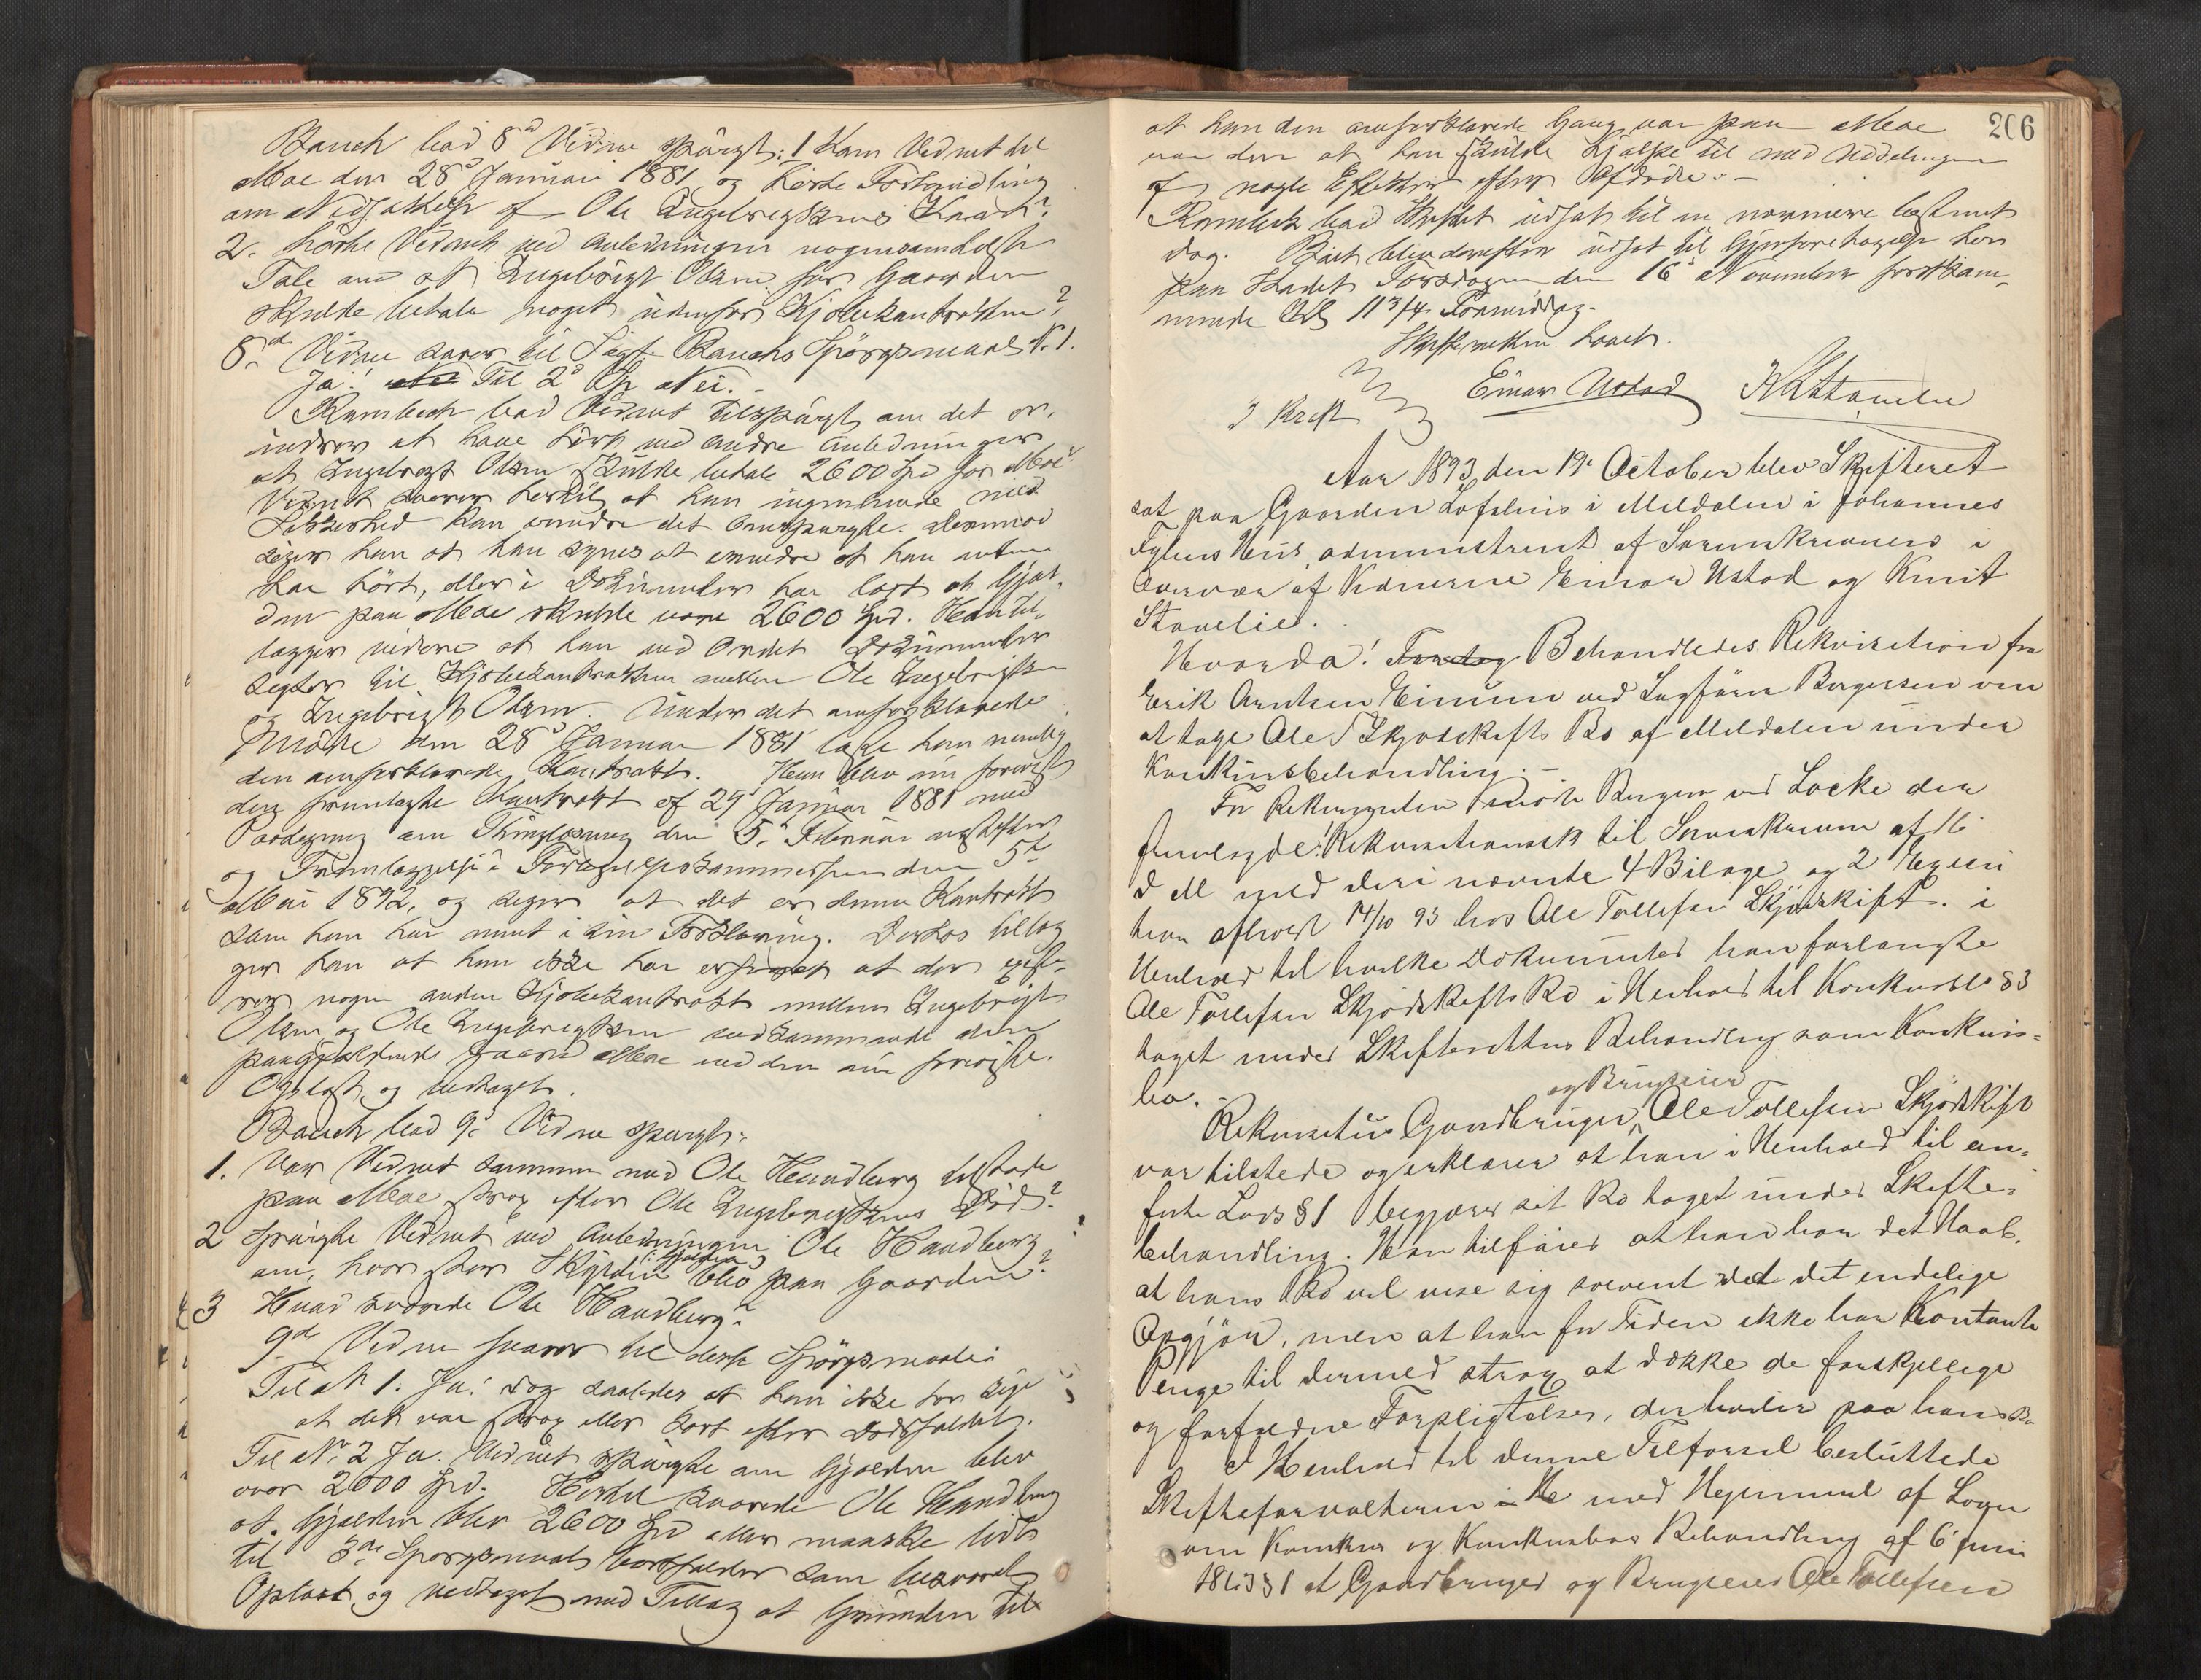 Bauck bad 8d Vidne spurgt: 1 Kom Vidnet til
Moe den 28d Januar 1881 og hørte Forhandling
om Udfattelse af Ole Engebregtsens Kaar?
2. hørte Vidnet ved Anledningen nogensomhelst
Tale om at Engebrigt Olsen for Gaarden
skulde betale noget udenfor Kjøbekontrakten?
8d Vidne svarer til Sagf. Bauchs Spørgsmaal N. 1.
Ja! Til 2d Sp. Nei. -
Rambech bad Vidnet tilspurgt om det er-
indrer at have hørt ved andre Anledninger
at Engebregt Olsen skulde betale 2600 Spd for Moe?
Vidnet svarer hertil at han ingenlunde med
Sikkerhed kan erindre det omspurgte. Derimod
siger han at han synes at erindre at han enten
har hørt, eller i Dokumenter har læst at Gjæl-
den paa Moe skulde være 2600 Spd. Han til-
lægger videre at han ved Ordet Dokumenter
sigter til Kjøbekontrakten mellem Ole Engebrigtsen
og Engebrigt Olsen. Under det omforklarede
Møde den 28d Januar 1881 læste han nemlig
den omforklarede Kontrakt. Han blev nu forevist
den fremlagte Kontrakt af 29d Januar 1881 med
Paategning om Thinglæsning den 5. Februar næstefter
og Fremlæggelse i Forligelseskommissionen den 5te
Mai 1892, og siger at det er denne Kontrakt
som han har ment i sin Forklaring. Derhos tillæg-
ger han at han ikke har erfaret at der existe-
rer nogen anden Kjøbekontrakt mellem Ingebrigt
Olsen og Ole Engebregtsen vedkommende den
paagjældende Gaard Moe end den nu foreviste.
Oplæst og vedtaget.
Bauch bad 9d Vidne spurgt:
1. Var Vidnet sammen med Ole Haudberg tilstede
paa Moe strax efter Ole Engebregtsens Død?
2 Spurgte Vidnet ved Anledningen Ole Haudberg
om, hvor stor Skylden (: Gjælden :) blev paa Gaarden?
3 Hvad svarede Ole Haudberg?
9de Vidne svarer til disse Spørgsmaale:
Til N 1. Ja! dog saaledes at han ikke tør sige
at det var strax eller kort efter Dødsfaldet.
Til No 2 Ja. Vidnet spurgte om Gjælden blev
over 2000 Spd. Hertil svarede Ole Haudberg
at Gjælden blev 2600 Spd eller maaske lidt
til 3de Spørgsmaal bortfalder som besvaret
Oplæst og vedtaget med Tillæg at Grunden til
206
at han den omforklarede Gang var paa Moe
var den at han skulde hjælpe til med Uddelingen
af nogle Effekter efter Afdøde. -
Rambech bad Skiftet udsat til en nærmere bestemt
dag. Boet blev derefter udsat til Gjenforetagelse her
paa Stedet Torsdagen den 16d November førstkom-
mende Kl 11 3/4 Formiddag.
Skifteretten hævet.
J Kraft Einar Ustad K Stavelie
Aar 1893 den 19. October blev Skifteret
sat paa Gaarden Løfshus i Meldalen i Johannes
Hus, administreret af Sorenskriveren i
Overvær af Vidnerne Einar Ustad og Knut
Stavelie.
Hvorda! Behandledes Rekvisition fra
Erik Arntsen Einum ved Sagfører Borgersen om
at tage Ole T Skjødskifts Bo af Meldalen under
Konkursbehandling. -
For Rekvirenten mødte Borgersen ved Løcke der
fremlagde! Rekvisitionsak til Sorenskriveren af 16
d M med deri nævnte 4 Bilage og 2 Execu
tion afholdt 14/10 93 hos Ole Tollefsen Skjødskift. i
Henhold til hvilke Dokumenter han forlangte
Ole Tollefsen Skjødskifts Bo i Henhold til Konkursl. § 3
taget under Skifterettens Behandling som Konkurs-
bo.
Rekvisitus Gaardbruger og Brugseier Ole Tollefsen Skjødskift
var tilstede og erklærer at han i Henhold til an-
førte Lovs § 1 begjærer sit Bo taget under Skifte-
behandling. Han tilføier at han har det Haab,
at hans Bo vil vise sig solvent ved det endelige
Opgjør, men at han for Tiden ikke har Kontante
Penge til dermed strax at dække de forskjellige
og forfaldne Forpligtelser, der hviler paa hans Bo
I Henhold til denne Tilførsel besluttede
Skifteforvalteren i He med Hjemmel af Loven
om Konkurs og Konkursbos Behandling af 6 juni
1863 § 1 at Gaardbruger og Brugseier Ole Tollefsen